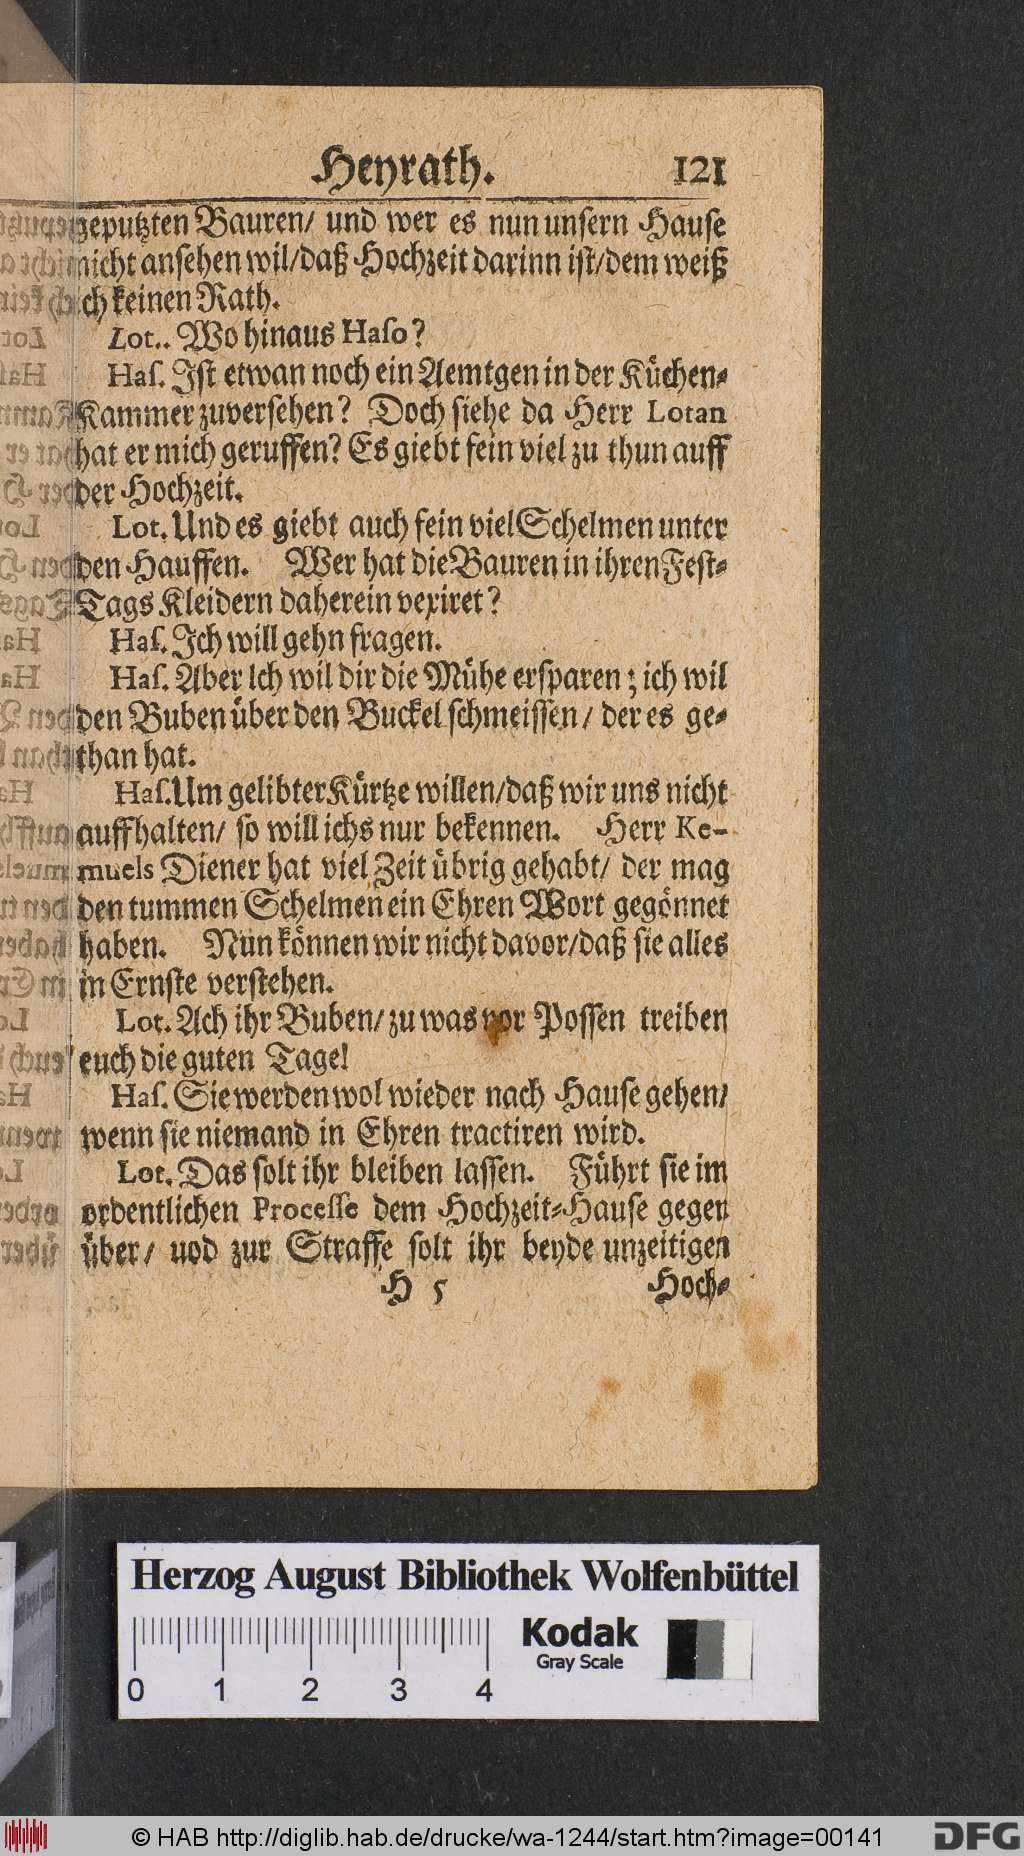 Heyrath. 121
geputzten Bauren/ und wer es nun unsern Hause
nicht ansehen wil/daß Hochzeit darinn ist/dem weiß
ich keinen Rath.
Lot.. Wo hinaus Haso?
Has. Ist etwan noch ein Aemtgen in der Küchen-
Kammer zuversehen? Doch siehe da Herr Lotan
hat er mich geruffen? Es giebt fein viel zu thun auff
der Hochzeit.
Lot. Und es giebt auch fein viel Schelmen unter
den Hauffen. Wer hat die Bauren in ihren Fest-
Tags Kleidern daherein vexiret?
Has. Ich will gehn fragen.
Has. Aber Ich wil dir die Mühe ersparen; ich wil
den Buben über den Buckel schmeissen/ der es ge-
than hat.
Has. Um gelibter Kürtze willen/daß wir uns nicht
auffhalten/ so will ichs nur bekennen. Herr Ke-
muels Diener hat viel Zeit übrig gehabt/ der mag
den tummen Schelmen ein Ehren Wort gegönnet
haben. Nun können wir nicht davor/daß sie alles
in Ernste verstehen.
Lot. Ach ihr Buben/ zu was vor Possen treiben
euch die guten Tage!
Has. Sie werden wol wieder nach Hause gehen/
wenn sie niemand in Ehren tractiren wird.
Lot. Das solt ihr bleiben lassen. Führt sie im
ordentlichen Processe dem Hochzeit-Hause gegen
über/ uod zur Straffe solt ihr beyde unzeitigen
H 5 Hoch-
Herzog August Bibliothek Wolfenbüttel
Kodak
Gray Scale
0 1 2 3 4
© HAB http://diglib.hab.de/drucke/wa-1244/start.htm?image=00141 DFG